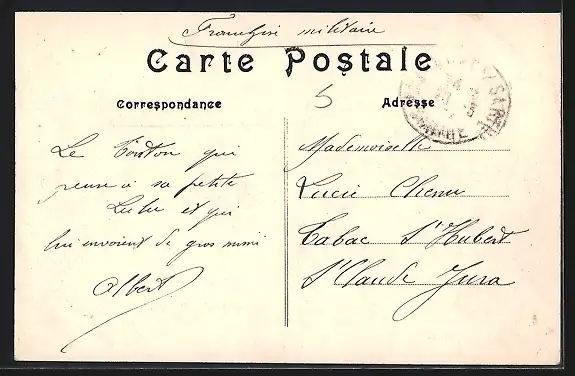 Franchise militaire
Carte Postale
Correspondance
5
Adresse
Le Tonton qui
pense à sa petite
Lulu et qui
lui envoient de gros mimi
Albert
Mademoiselle
Lucie Chenu
Tabac St Hubert
St Claude Jura